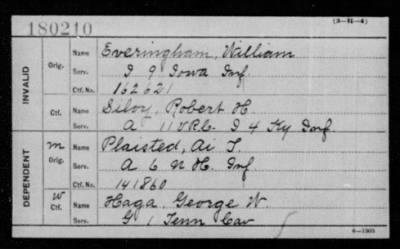 180210
(3-H-4)
INVALID
Orig. Name Everingham, William
Serv. I 9 Iowa Inf.
Ctf. No. 162621
Ctf. Name Robert H.
Serv. A I 4 Ky Inf.
DEPENDENT
m Orig. Name Plaisted, Ai T.
Serv. A 6 N H. Inf.
Ctf. No. 141860
W Ctf. Name Haga, George W.
Serv. G 1 Tenn Cav